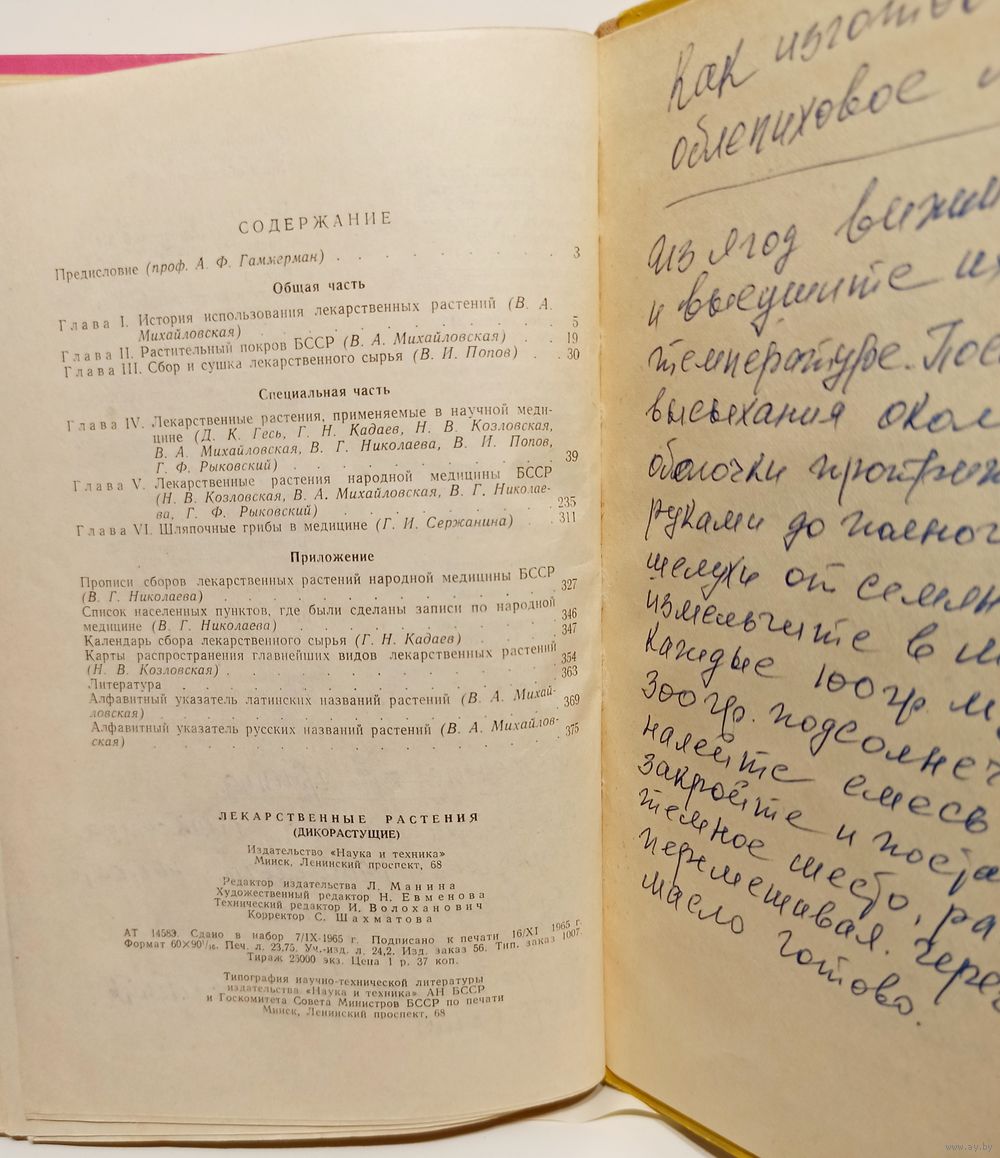 СОДЕРЖАНИЕ
Предисловие (проф. А. Ф. Гаммерман) . . . . . . . . . 3
Общая часть
Глава I. История использования лекарственных растений (В. А.
Михайловская) . . . . . . . . . . . 5
Глава II. Растительный покров БССР (В. А. Михайловская) . . 19
Глава III. Сбор и сушка лекарственного сырья (В. И. Попов) . . 30
Специальная часть
Глава IV. Лекарственные растения, применяемые в научной меди-
цине (Д. К. Гесь, Г. Н. Кадаев, Н. В. Козловская,
В. А. Михайловская, В. Г. Николаева, В. И. Попов,
Г. Ф. Рыковский) . . . . . . . . . . 39
Глава V. Лекарственные растения народной медицины БССР
(Н. В. Козловская, В. А. Михайловская, В. Г. Николае-
ва, Г. Ф. Рыковский) . . . . . . . . . 235
Глава VI. Шляпочные грибы в медицине (Г. И. Сержанина) . . 311
Приложение
Прописи сборов лекарственных растений народной медицины БССР
(В. Г. Николаева) . . . . . . . . . . . 327
Список населенных пунктов, где были сделаны записи по народной
медицине (В. Г. Николаева) . . . . . . . . . 346
Календарь сбора лекарственного сырья (Г. Н. Кадаев) . . . . 347
Карты распространения главнейших видов лекарственных растений
(Н. В. Козловская) . . . . . . . . . . . 354
Литература . . . . . . . . . . . . . 363
Алфавитный указатель латинских названий растений (В. А. Михай-
ловская) . . . . . . . . . . . . . 369
Алфавитный указатель русских названий растений (В. А. Михайлов-
ская) . . . . . . . . . . . . . . 375
ЛЕКАРСТВЕННЫЕ РАСТЕНИЯ
(ДИКОРАСТУЩИЕ)
Издательство «Наука и техника»
Минск, Ленинский проспект, 68
Редактор издательства Л. Манина
Художественный редактор Н. Евменова
Технический редактор И. Волоханович
Корректор С. Шахматова
АТ 14583. Сдано в набор 7/IX-1965 г. Подписано к печати 16/XI 1965 г.
Формат 60×90¹/₁₆. Печ. л. 23,75. Уч.-изд. л. 24,2. Изд. заказ 56. Тип. заказ 1007.
Тираж 25000 экз. Цена 1 р. 37 коп.
Типография научно-технической литературы
издательства «Наука и техника» АН БССР
и Госкомитета Совета Министров БССР по печати
Минск, Ленинский проспект, 68
Как изготов
облепиховое
Из ягод
и высушите их
температуре. Пос
высыхания окол
оболочки
руками до полног
шелухи от семян
измельчите в м
Каждые 100гр м
300гр. подсолнеч
налейте смесь
закройте и поста
темное место, ра
перемешивая. Через
масло готово.
www.ay.by